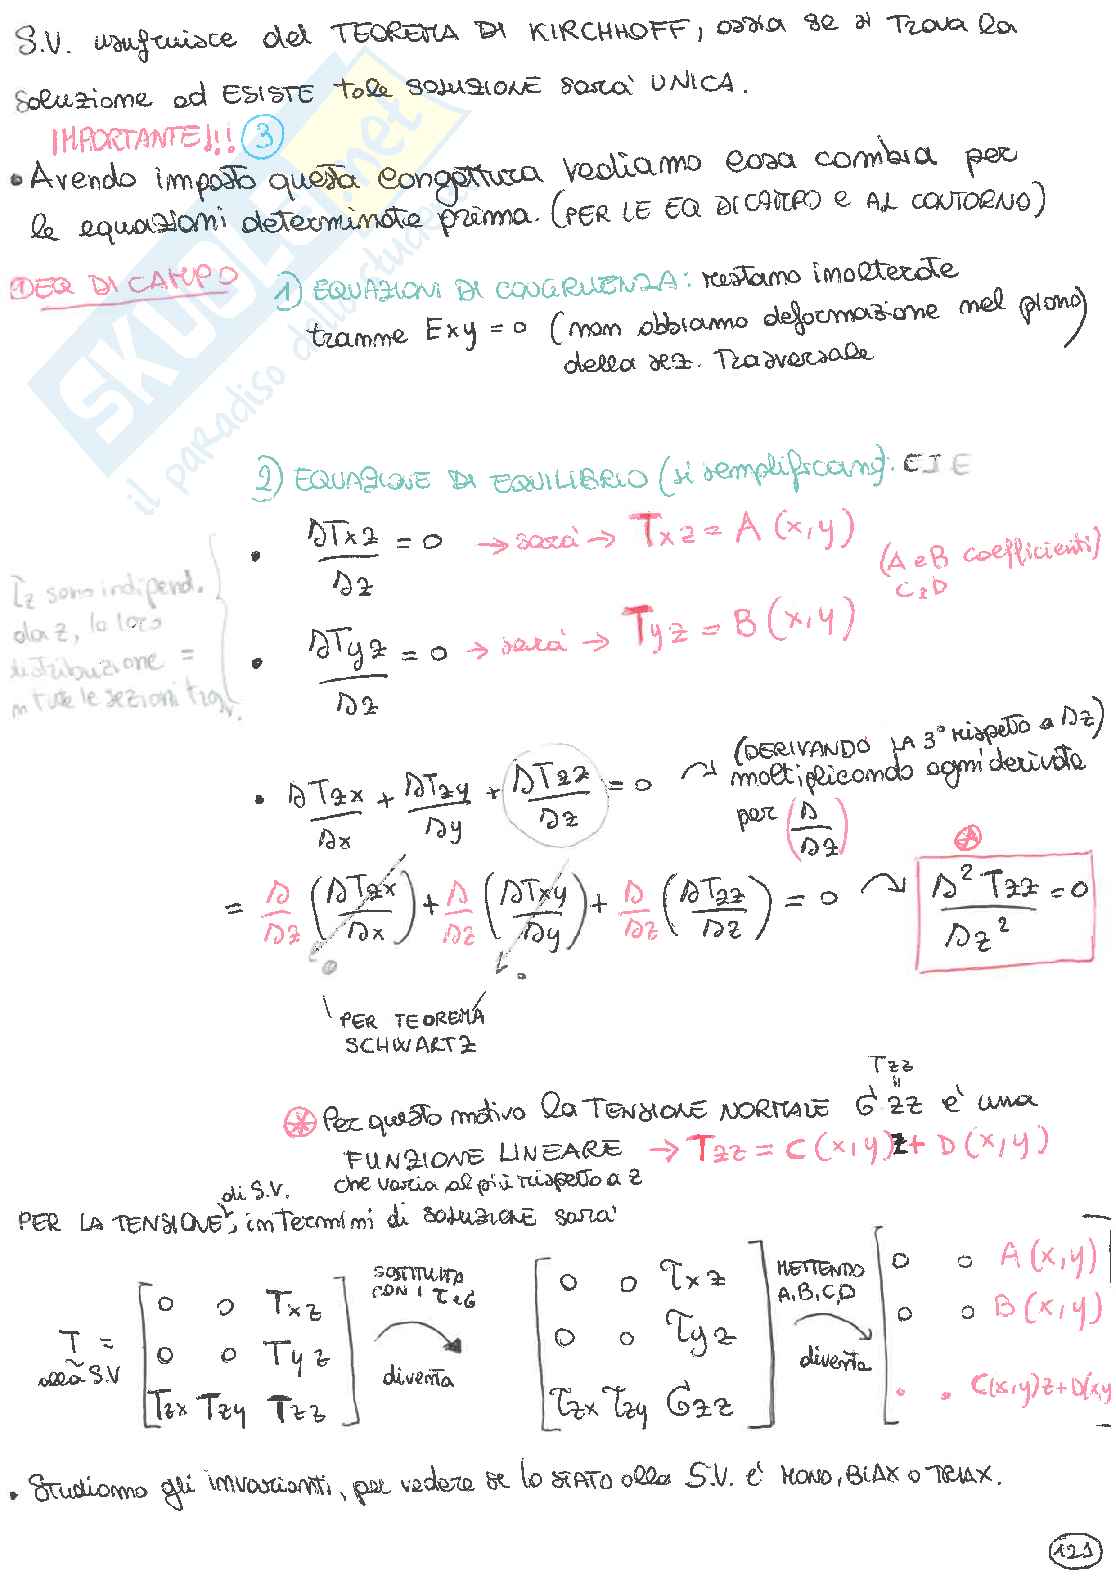 S.V. usufruisce del TEOREMA DI KIRCHHOFF, ossia se si trova la
soluzione ed ESISTE tale SOLUZIONE sarà UNICA.
IMPORTANTE!!! 3
• Avendo imposto questa congettura vediamo cosa cambia per
le equazioni determinate prima. (PER LE EQ DI CAMPO e AL CONTORNO)
① EQ DI CAMPO
1) EQUAZIONI DI CONGRUENZA: restano inalterate
tranne Exy = 0 (non abbiamo deformazione nel piano)
della sez. Trasversale
2) EQUAZIONE DI EQUILIBRIO (si semplificano): EIE
• ∂Txz/∂z = 0 → sarà → Txz = A (x,y)
(A e B coefficienti)
C e D
• ∂Tyz/∂z = 0 → sarà → Tyz = B (x,y)
Tz sono indipend.
da z, la loro
distribuzione =
in tutte le sezioni trasv.
• ∂Tzx/∂x + ∂Tzy/∂y + ∂Tzz/∂z = 0
(DERIVANDO LA 3° rispetto a ∂z)
moltiplicando ogni derivata
per (∂/∂z)
= ∂/∂z (∂Tzx/∂x) + ∂/∂z (∂Txy/∂y) + ∂/∂z (∂Tzz/∂z) = 0
∂²Tzz/∂z² = 0
0 0
PER TEOREMA
SCHWARTZ
Tzz
"
Per questo motivo la TENSIONE NORMALE σzz è una
FUNZIONE LINEARE → Tzz = C (x,y) z + D (x,y)
che varia al più rispetto a z
di S.V.
PER LA TENSIONE, in termini di soluzione sarà
T = [0 0 Txz
0 0 Tyz
Tzx Tzy Tzz]
alla S.V
SOSTITUITA
CON I τ e σ
diventa
[0 0 τxz
0 0 τyz
τzx τzy σzz]
METTENDO
A,B,C,D
diventa
[0 0 A(x,y)
0 0 B(x,y)
. . C(x,y)z+D(x,y
• Studiamo gli invarianti, per vedere se lo STATO alla S.V. è MONO, BIAX o TRIAX.
121
SKUOLA.net
il paradiso dello studente